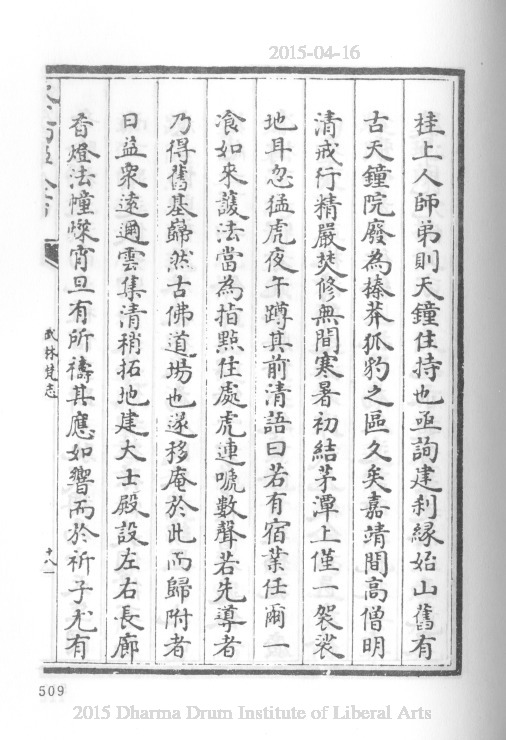 2015-04-16
桂上人師弟則天鐘住持也亟詢建刹緣始山舊有
古天鐘院廢為榛莽狐豹之區久矣嘉靖間高僧明
清戒行精嚴焚修無間寒暑初結茅潭上僅一袈裟
地耳忽猛虎夜午蹲其前清語曰若有宿業任爾一
飡如來護法當為指點住處虎連唬數聲若先導者
乃得舊基歸然古佛道場也遂移庵於此而歸附者
日益衆遠邇雲集清稍拓地建大士殿設左右長廊
香燈法幢燦宵旦有所禱其應如響而於祈子尤有
武林梵志
十八
509
2015 Dharma Drum Institute of Liberal Arts